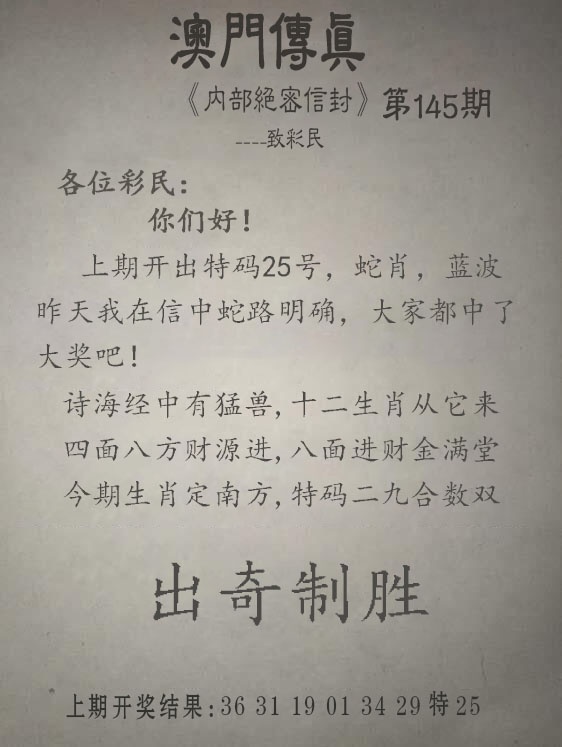 澳門傳真
《内部絕密信封》第145期
----致彩民
各位彩民:
你们好!
上期开出特码25号，蛇肖，蓝波
昨天我在信中蛇路明确，大家都中了
大奖吧!
诗海经中有猛兽,十二生肖从它来
四面八方财源进,八面进财金满堂
今期生肖定南方,特码二九合数双
出奇制胜
上期开奖结果:36 31 19 01 34 29 特 25